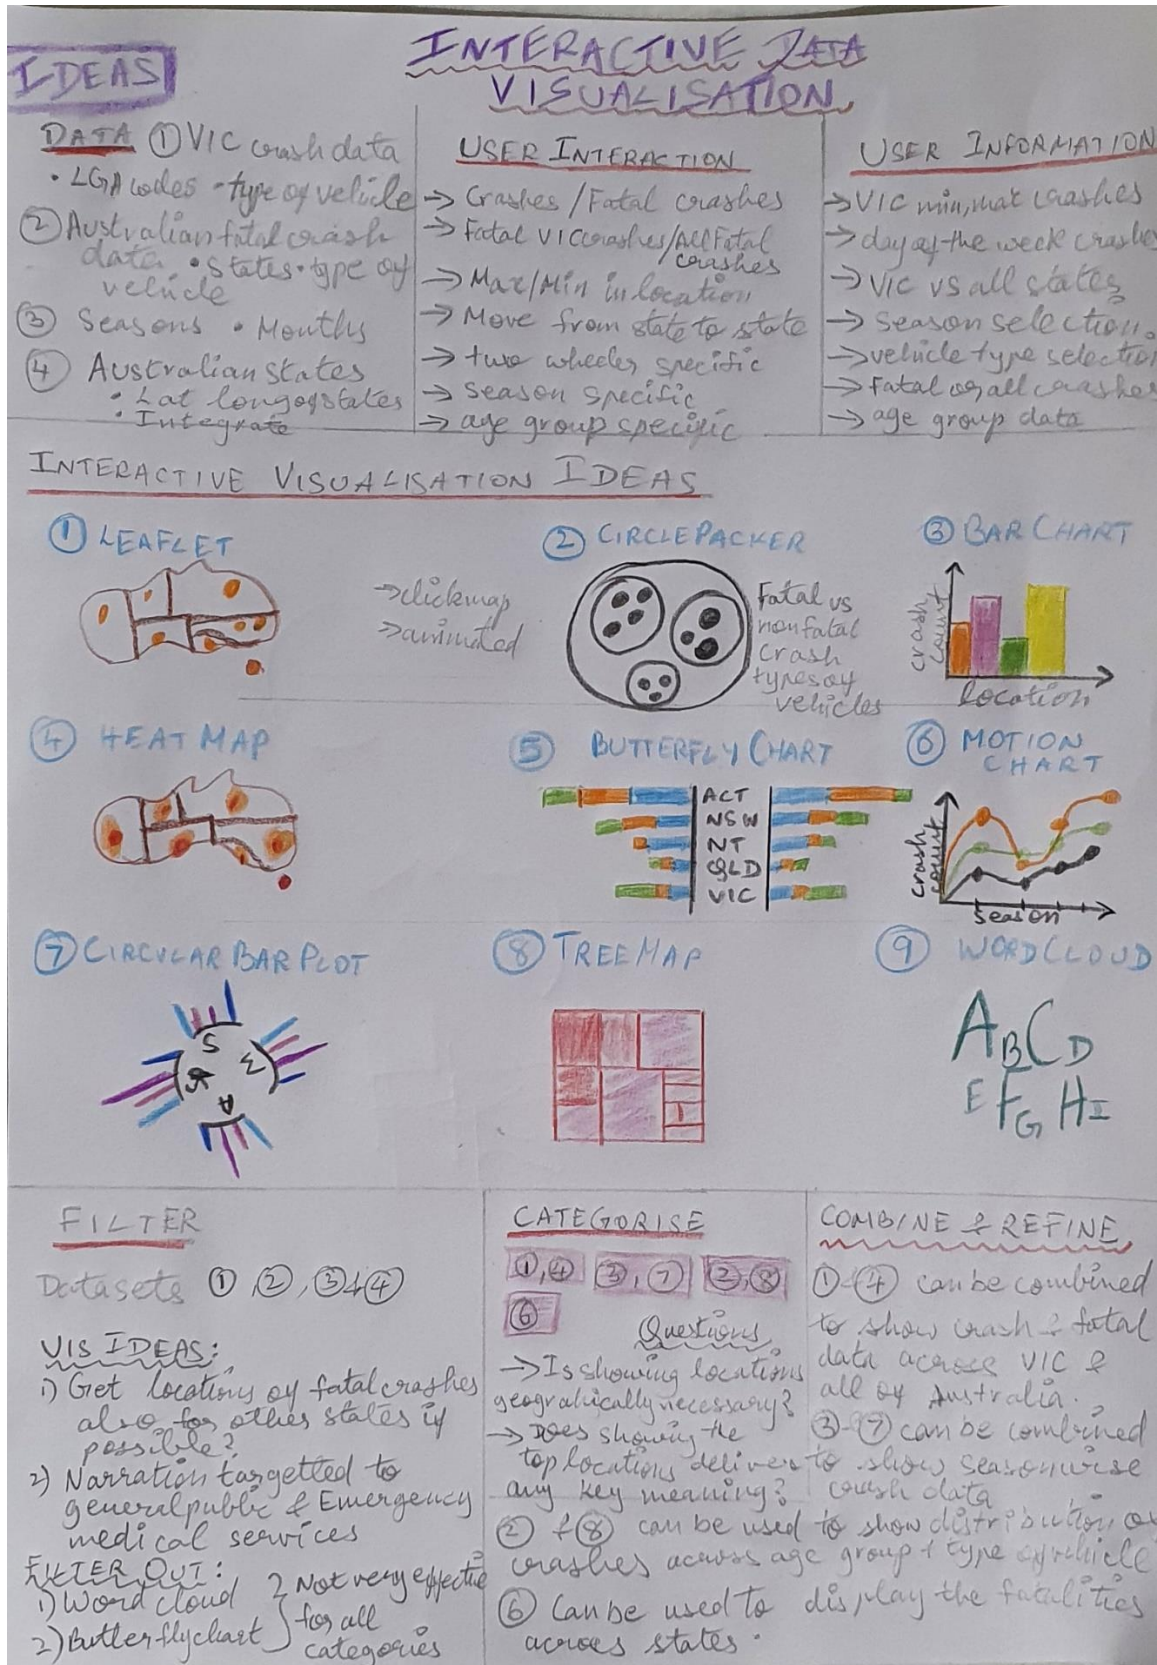 IDEAS
INTERACTIVE DATA
VISUALISATION
DATA ① VIC crash data
• LGA codes • type of vehicle
② Australian fatal crash
data • States • type of
vehicle
③ Seasons • Months
④ Australian states
• Lat long of states
• Integrate
USER INTERACTION
→ Crashes / Fatal crashes
→ Fatal VIC crashes/All Fatal
crashes
→ Max/Min in location
→ Move from state to state
→ two wheeler specific
→ season specific
→ age group specific
USER INFORMATION
→ VIC min, max crashes
→ day of the week crashes
→ VIC vs all states
→ Season selection.
→ vehicle type selection
→ Fatal or all crashes
→ age group data
INTERACTIVE VISUALISATION IDEAS
① LEAFLET
→ clickmap
→ animated
② CIRCLE PACKER
Fatal vs
non fatal
crash
types of
vehicles
③ BAR CHART
crash
count
location
④ HEAT MAP
⑤ BUTTERFLY CHART
ACT
NSW
NT
QLD
VIC
⑥ MOTION
CHART
crash
count
Season
⑦ CIRCULAR BAR PLOT
S
W
A
⑧ TREE MAP
⑨ WORD CLOUD
A B C D
E F G H I
FILTER
Datasets ①, ②, ③ & ④
VIS IDEAS:
1) Get locations of fatal crashes
also for other states if
possible?
2) Narration targetted to
general public & Emergency
medical services
FILTER OUT:
1) Word cloud
2) Butterfly chart
Not very effective
for all
categories
CATEGORISE
①,④ ③,⑦ ②,⑧
⑥
Questions
→ Is showing locations
geograhically necessary?
→ Does showing the
top locations deliver
any key meaning?
COMBINE & REFINE
①-④ can be combined
to show crash & fatal
data across VIC &
all of Australia.
③-⑦ can be combined
to show seasonwise
crash data
② & ⑧ can be used to show distribution of
crashes across age group + type of vehicle
⑥ Can be used to display the fatalities
across states.